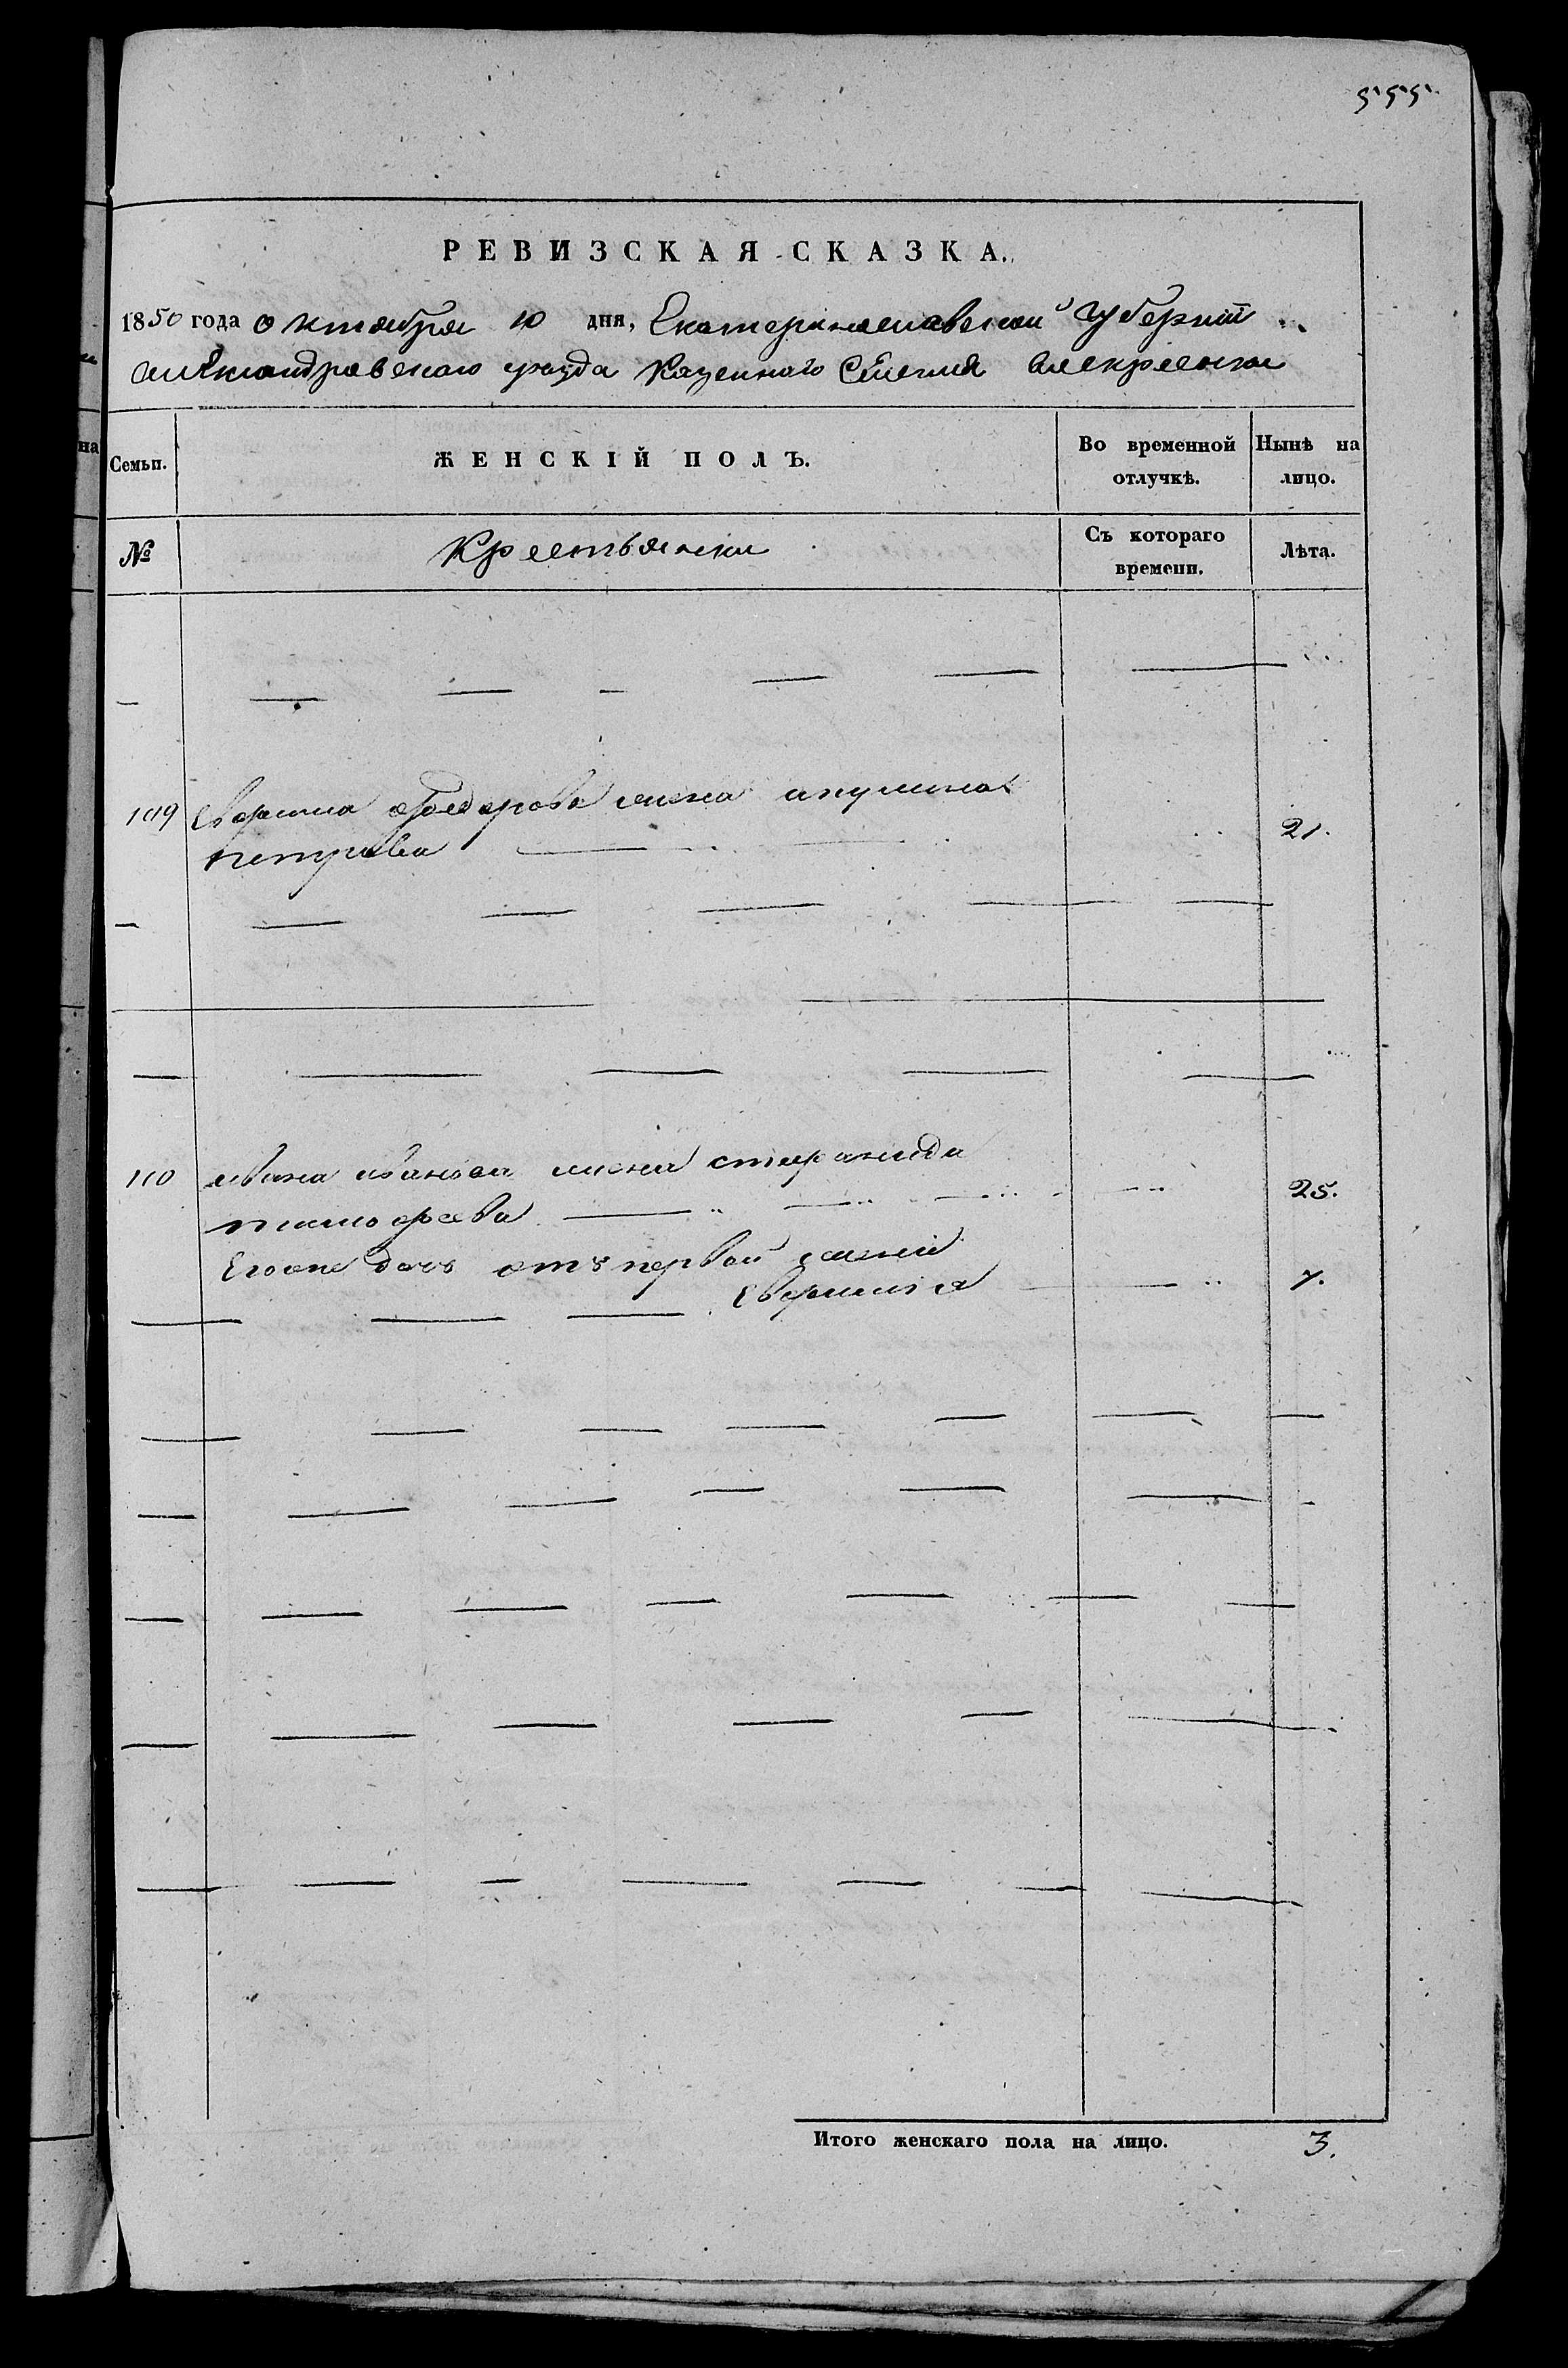 555
РЕВИЗСКАЯ СКАЗКА.
1850 года октября 10 дня, Екатеринославской Губернии
Александровскаго уезда Казеннаго Селения
на
Семьи.
ЖЕНСКІЙ ПОЛЪ.
Во временной отлучкѣ.
Нынѣ на лицо.
№
Крестьянки
Съ котораго времени.
Лѣта.
109 Ефима Федорова жена акулина
петрова 21.
110 ивана иванова жена
тимофеева 25.
Егоже дочь отъ первой жены
Ефимия 7.
Итого женскаго пола на лицо. 3.